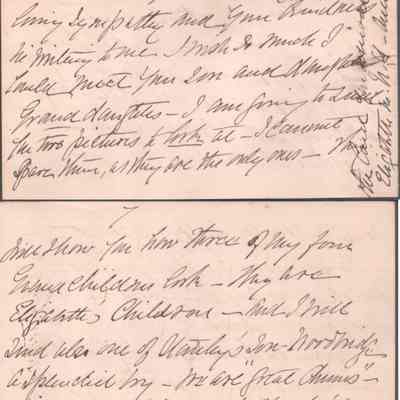 loving Sympathy and Your Kindness
in writing to me I wish so much I
Could meet Your Son and daughter
Grand daughters - I am going to Send
You two pictures to look at - I cannot
spare them, as they are the only ones -
7
will show You how three of My four
Grand Children look - They are
Elizabeth's Children - and I will
Send also one of Son - Woodbridge
a Splendid boy - We are "great Chums" -
Elizabeth in